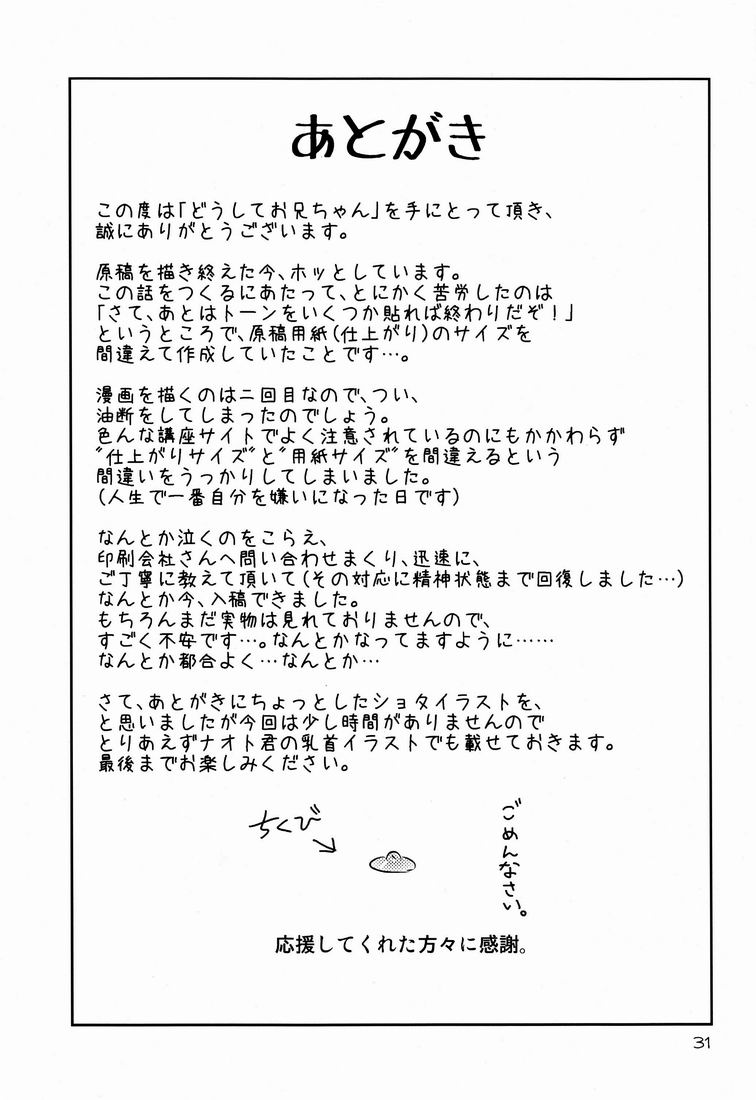 あとがき
この度は「どうしてお兄ちゃん」を手にとって頂き、
誠にありがとうございます。
原稿を描き終えた今、ホッとしています。
この話をつくるにあたって、とにかく苦労したのは
「さて、あとはトーンをいくつか貼れば終わりだぞ！」
というところで、原稿用紙(仕上がり)のサイズを
間違えて作成していたことです…。
漫画を描くのは二回目なので、つい、
油断をしてしまったのでしょう。
色んな講座サイトでよく注意されているのにもかかわらず
〝仕上がりサイズ〟と〝用紙サイズ〟を間違えるという
間違いをうっかりしてしまいました。
(人生で一番自分を嫌いになった日です)
なんとか泣くのをこらえ、
印刷会社さんへ問い合わせまくり、迅速に、
ご丁寧に教えて頂いて(その対応に精神状態まで回復しました…)
なんとか今、入稿できました。
もちろんまだ実物は見れておりませんので、
すごく不安です…。なんとかなってますように……
なんとか都合よく…なんとか…
さて、あとがきにちょっとしたショタイラストを、
と思いましたが今回は少し時間がありませんので
とりあえずナオト君の乳首イラストでも載せておきます。
最後までお楽しみください。
ちくび
ごめんなさい。
応援してくれた方々に感謝。
31